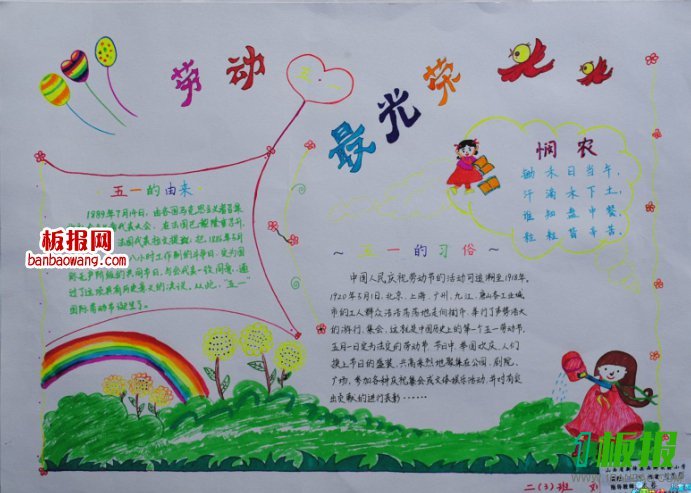 劳动
最光荣
悯农
锄禾日当午,
汗滴禾下土,
谁知盘中餐
粒粒皆辛苦。
五一的由来
1889年7月14日,由各国马克思主义者召集
代表大会,在法国巴黎隆重开
法国代表拉文提议,把1886年5月
八小时工作制的斗争日,定为国
际无产阶级的共同节日,与会代表一致同意,通
过了这项具有历史意义的决议。从此,“五一”
国际劳动节诞生了。
板报网
banbaowang.com
~五一的习俗~
中国人民庆祝劳动节的活动可追溯至1918年。
1920年5月1日,北京、上海、广州、九江、唐山各工业城
市的工人群众浩浩荡荡地走向街市、举行了声势浩大
的游行、集会,这就是中国历史上的第一个五一劳动节,
五月一日定为法定的劳动节,节日中,举国欢庆,人们
换上节日的盛装,兴高采烈地聚集在公园、剧院、
广场,参加各种庆祝集会或文体娱乐活动,并对有突
出贡献的进行表彰……
板报
二(3)班